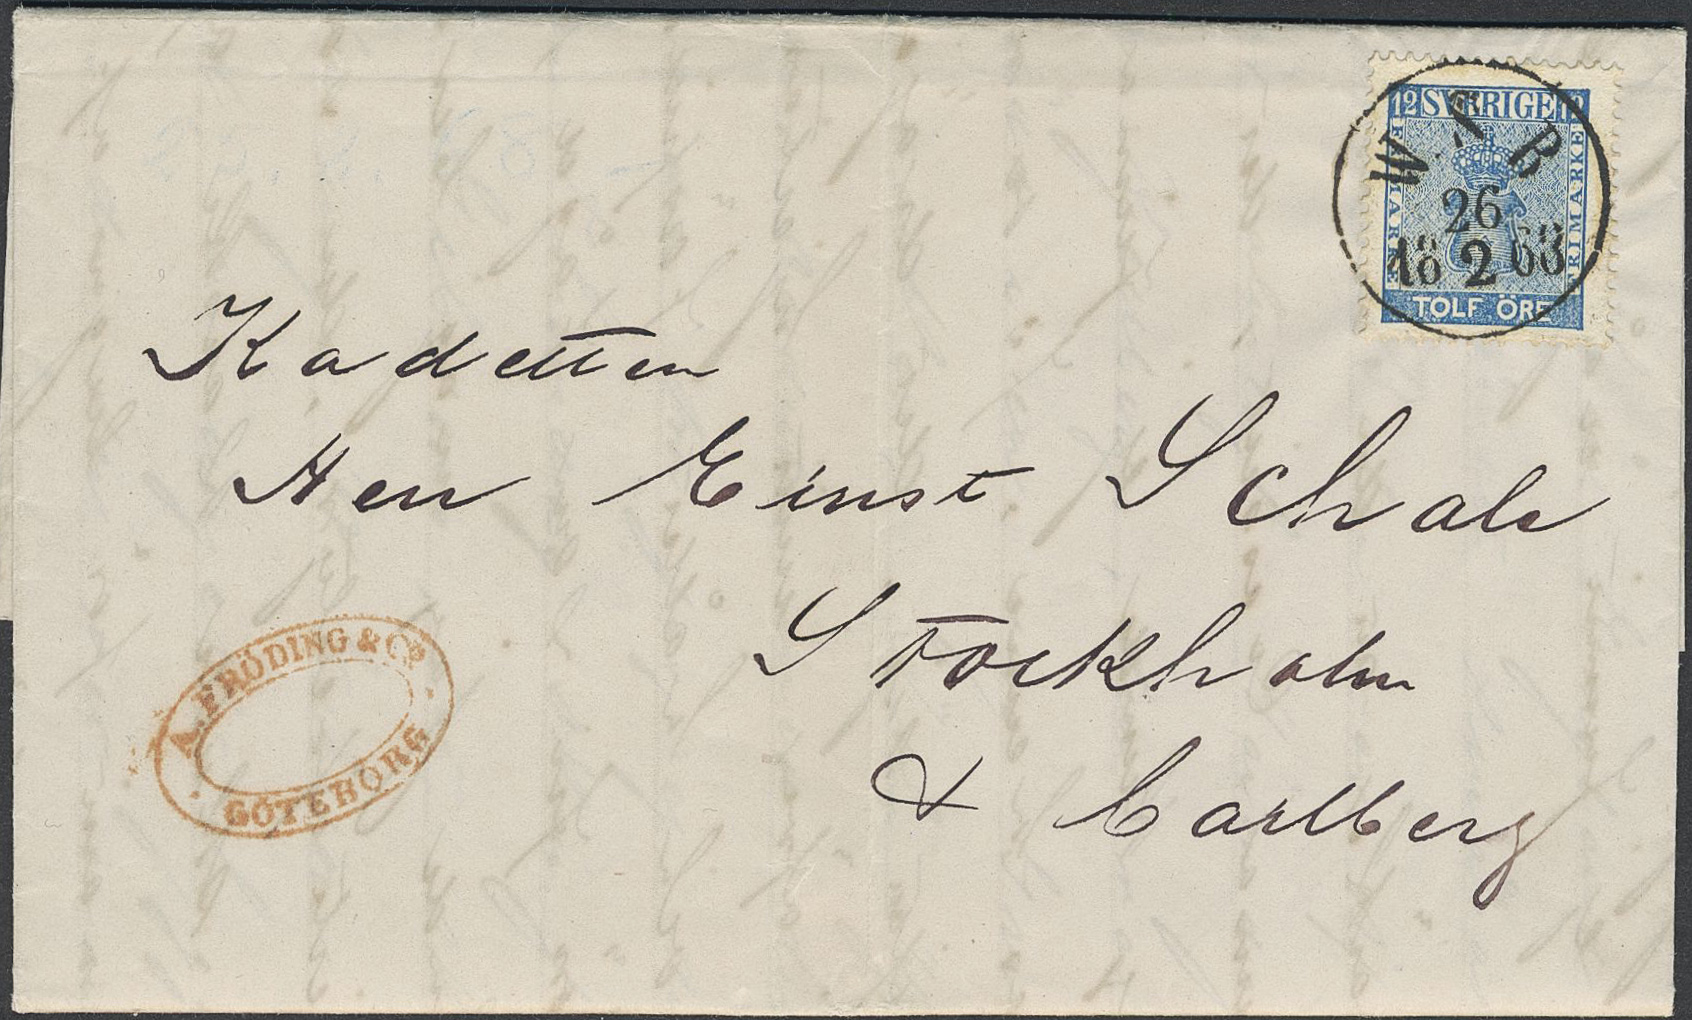 12 SVERIGE 12
FRIMARKE
FRIMARKE
TOLF ÖRE
W. T B
26
18 2 68
Kadetten
Herr Ernst Schale
Stockholm
& Carlberg
A. FRÖDING & Co
GÖTEBORG